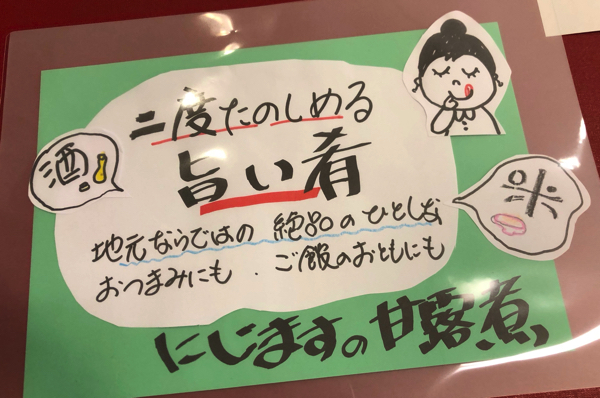 二度たのしめる
旨い肴
酒!
米
地元ならではの 絶品のひとしな
おつまみにも . ご飯のおともにも
にじますの甘露煮